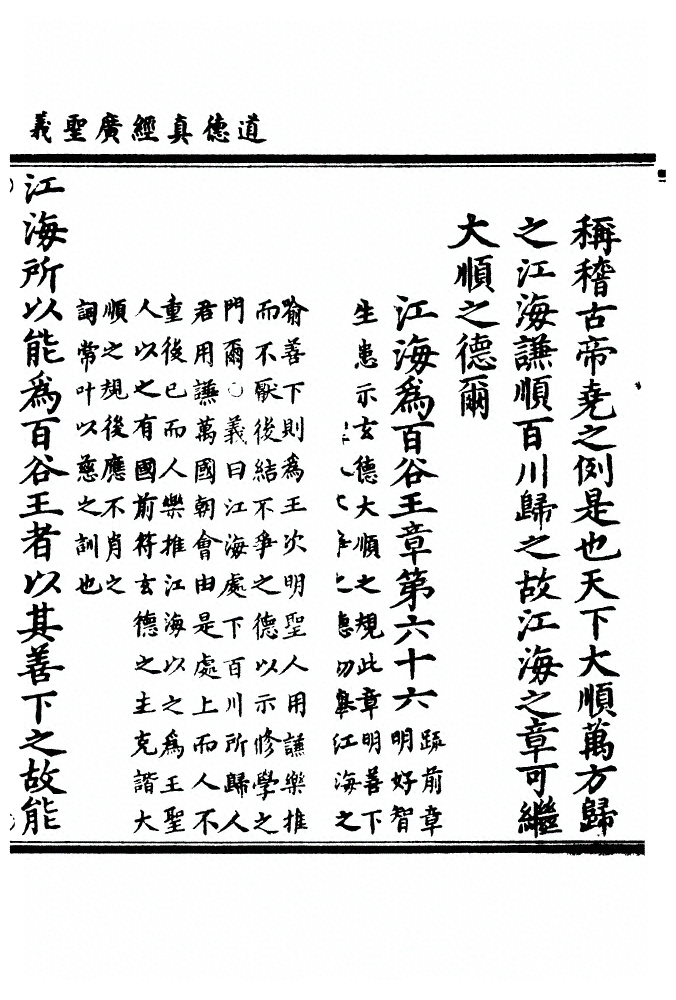 道德真經廣聖義
稱稽古帝堯之例是也天下大順萬方歸
之江海謙順百川歸之故江海之章可繼
大順之德爾
江海爲百谷王章第六十六 疏前章
明好智
生患示玄德大順之規此章明善下
之德初舉江海之
喻善下則爲王次明聖人用謙樂推
而不厭後結不爭之德以示修學之
門爾○義曰江海處下百川所歸人
君用謙萬國朝會由是處上而人不
重後已而人樂推江海以之爲王聖
人以之有國前符玄德之主克諧大
順之規後應不肖之
詞常叶以慈之訓也
江海所以能爲百谷王者以其善下之故能